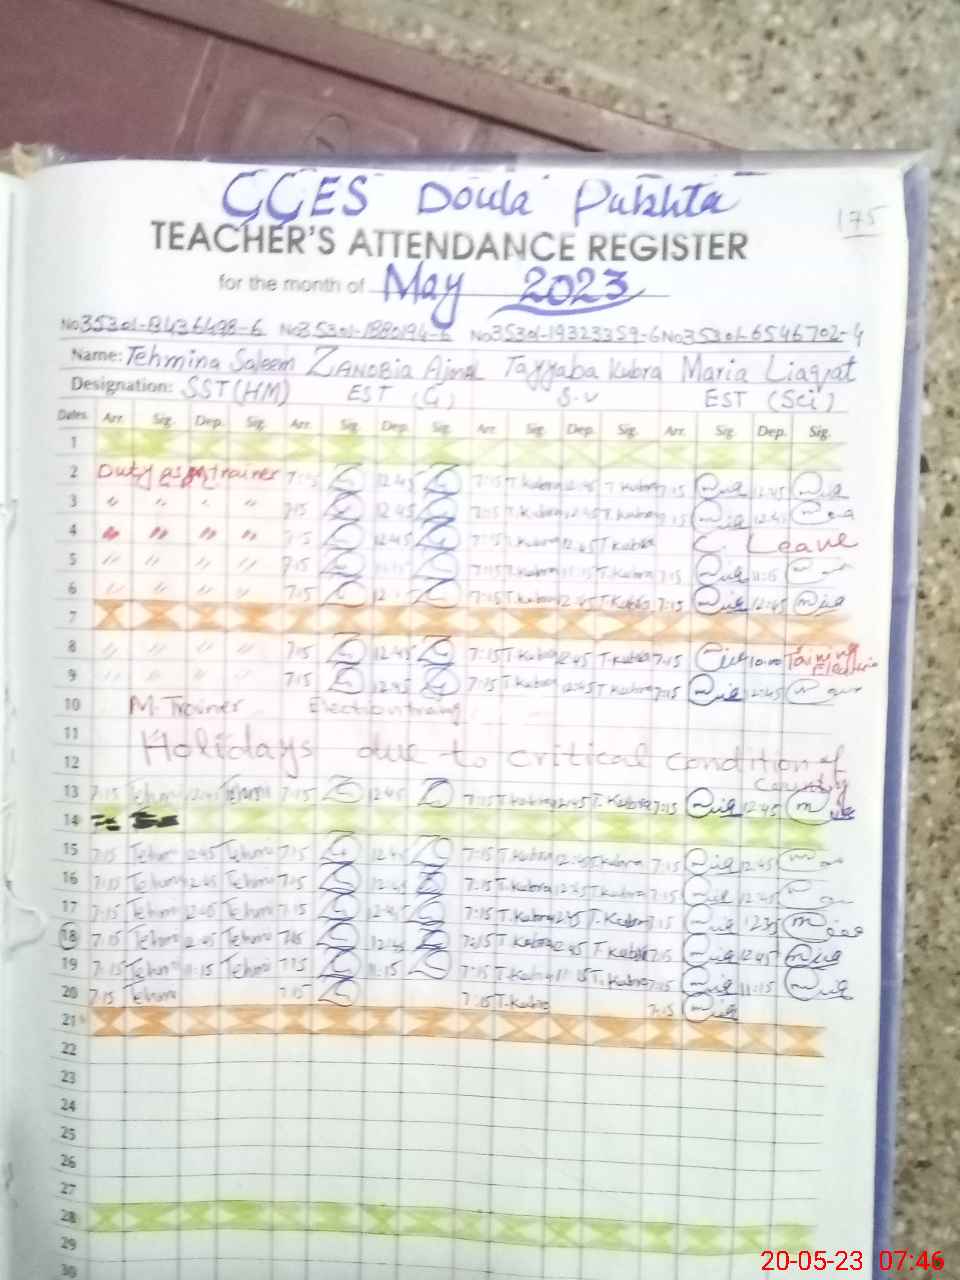 GGES Doula Pukhta
175
TEACHER'S ATTENDANCE REGISTER
for the month of May 2023
No 35301- No 35301- No 35301-19323359-6 No 35301-6546702-4
Name: Tehmina Saleem Zanobia Ajmal Tayyaba Kubra Maria Liaqat
Designation: SST(HM) EST (G) S.V EST (Sci)
Dates Arr. Sig. Dep. Sig. Arr. Sig. Dep. Sig. Arr. Sig. Dep. Sig. Arr. Sig. Dep. Sig.
1
2 Duty as M trainer 7:15 12:45 7:15 T.Kubra 12:45 T.Kubra 7:15 12:45
3 " " " " 7:15 12:45 7:15 T.Kubra 12:45 T.Kubra 7:15 12:45
4 " " " " 7:15 12:45 7:15 T.Kubra 12:45 T.Kubra C. Leave
5 " " " " 7:15 11:15 7:15 T.Kubra 11:15 T.Kubra 7:15 11:15
6 " " " " 7:15 7:15 T.Kubra 12:45 T.Kubra 7:15 12:45
7
8 " " " " 7:15 12:45 7:15 T.Kubra 12:45 T.Kubra 7:15 10:00
9 " " " " 7:15 12:45 7:15 T.Kubra 12:45 T.Kubra 7:15 12:45
10 M. Trainer Election training
11
12 Holidays due to critical condition of
Country
13 7:15 Tehmi 12:45 Tehmi 7:15 12:45 7:15 T.Kubra 12:45 T.Kubra 7:15 12:45
14
15 7:15 Tehmi 12:45 Tehmi 7:15 12:45 7:15 T.Kubra 12:45 T.Kubra 7:15 12:45
16 7:15 Tehmi 12:45 Tehmi 7:15 12:45 7:15 T.Kubra 12:45 T.Kubra 7:15 12:45
17 7:15 Tehmi 12:45 Tehmi 7:15 12:45 7:15 T.Kubra 12:45 T.Kubra 7:15
18 7:15 Tehmi 12:45 Tehmi 7:15 12:45 7:15 T.Kubra 12:45 T.Kubra 7:15 12:45
19 7:15 Tehmi 11:15 Tehmi 7:15 11:15 7:15 T.Kubra 11:15 T.Kubra 7:15 11:15
20 7:15 Tehmi 7:15 7:15 T.Kubra 7:15
21
22
23
24
25
26
27
28
29
30
20-05-23 07:46